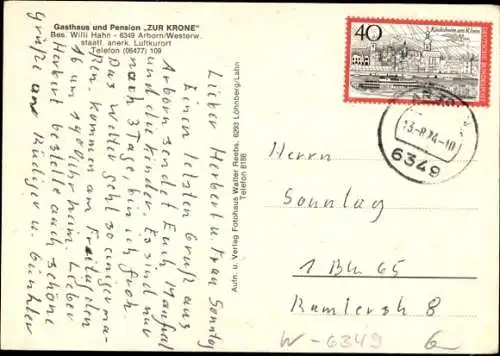 Gasthaus und Pension „ZUR KRONE"
Bes. Willi Hahn - 6349 Arborn/Westerw.
staatl. anerk. Luftkurort
Telefon (06477) 109
Lieber Herbert u Frau Sonntag
Einen letzten Gruß aus
Arborn sendet Euch
und die Kinder. Es sind nur
noch 3 Tage, bin ich froh.
Das Wetter geht so einigerma-
ßen. kommen am Freitag den
16 um 19 Uhr heim. Lieber
Herbert bestelle auch schöne
Grüße an Rüdiger u. Günther
Aufn. u. Verlag Fotohaus Walter Reeba, 6293 Löhnberg/Lahn
Telefon 8188
40
DEUTSCHE BUNDESPOST
13.-8.74-10
6349
Herrn
Sonntag
1 Bln 65
Ramlerstr 8
W-6349